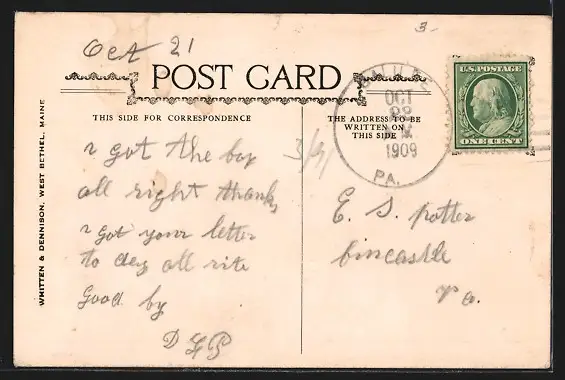 Oct 21
3-
POST CARD
U.S. POSTAGE
ONE CENT
OCT
1909
PA.
THIS SIDE FOR CORRESPONDENCE
THE ADDRESS TO BE
WRITTEN ON
THIS SIDE
WHITTEN & DENNISON, WEST BETHEL, MAINE
I got the box
all right thanks
I got your letter
to day all rite
good by
D F P
E. S. Potter
Fincastle
Va.